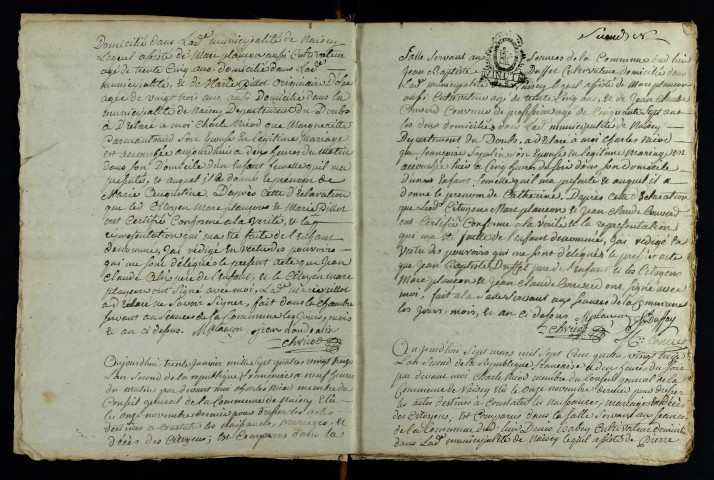 Domicilié dans Lad. municipalité de Naisey
Lequel assisté de Marc plançon aussi Cultivateur
agé de trente Cinq ans domicilié dans Lad.
municipalité, et de Marie Pillot originaire
agée de vingt trois ans aussi Domicilié dans la
municipalité de Naisey Département du Doubs
a Déclaré a moi Charle Nicod que Marguerite
son Epouse en Légitime mariage
est accouchée aujourd'hui a deux heures du matin
dans son Domicile d'un Enfant femelle qu'il me
présente, et auquel il a donné le prénom de
Marie D'après cette Déclaration
que les Citoyen Marc plançon et Marie Pillot
ont Certifié Conforme a la vérité, et la
représentation qui m'a été faite de l'Enfant
dénommé, J'ai rédigé En vertu des pouvoirs
qui me sont délégués le présent acte que Jean
Claude père de l'Enfant, et le Citoyen marc
plançon ont Signé avec moi, Lad. Marie pillot
a Déclaré ne Savoir Signer, fait dans la Chambre
servant au Séances de la Commune les Jours, mois
et an ci dessus. Mplançon Jean
C Nicod
Aujourdhui trente Janvier mille Sept quatre vingt treize
L'an Second de la republique francaise a neuf heures
du matin par devant moi Charles Nicod membre du
Conseil general de la Commune de Naisey Elu
le onze novembre dernier pour dresser les actes
destinés a constater les Naissances, mariages, et
décès des Citoyens; Est Comparu dans la
Salle Servant aux Séances de la Commune dud. lieu
Jean Baptiste Duffet Cultivateur Domicilié dans
Lad. municipalité de Naisey, lequel assisté de Marc plançon
aussi Cultivateur agé de trente Cinq ans, et de Jean Claude
de profession agé de Cinquante Sept ans
les deux domiciliés dans Lad. municipalité de Naisey
Département du Doubs, a Déclaré a moi Charles Nicod
que françoise son Epouse en Légitime mariage est
accouchée hier a Cinq heures du soir dans son domicile
d'un Enfant femelle qu'il me présente et auquel il a
donné le prénom de Catherine. D'apres cette déclaration
que Lesd. Citoyens Marc plançon et Jean Claude
ont Certifié Conforme a la vérité et la représentation
qui m'a été faite de l'enfant dénommé, J'ai rédigé En
vertu des pouvoirs qui me sont délégués le présent acte
que Jean Baptiste Duffet père de l'enfant et les Citoyens
Marc plançon et Jean Claude ont Signé avec
moi, fait a la Salle Servant aux Séances de la Commune
les Jours, mois, et an ci dessus. Mplançon
C Nicod
Aujourdhui Sept mars mil Sept Cent quatre vingt treize
L'an Second de la République francaise a deux heures du soir
par devant moi Charle Nicod membre du Conseil general de la
Commune de Naisey Elu le onze novembre dernier pour dresser
les actes destinés a Constater les Naissances, mariages et décès
des Citoyens, Est Comparu dans la Salle Servant au Séances
de la Commune dud. lieu Denis Isabey Cultivateur domicilié
dans Lad. municipalité de Naisey lequel assisté de Pierre